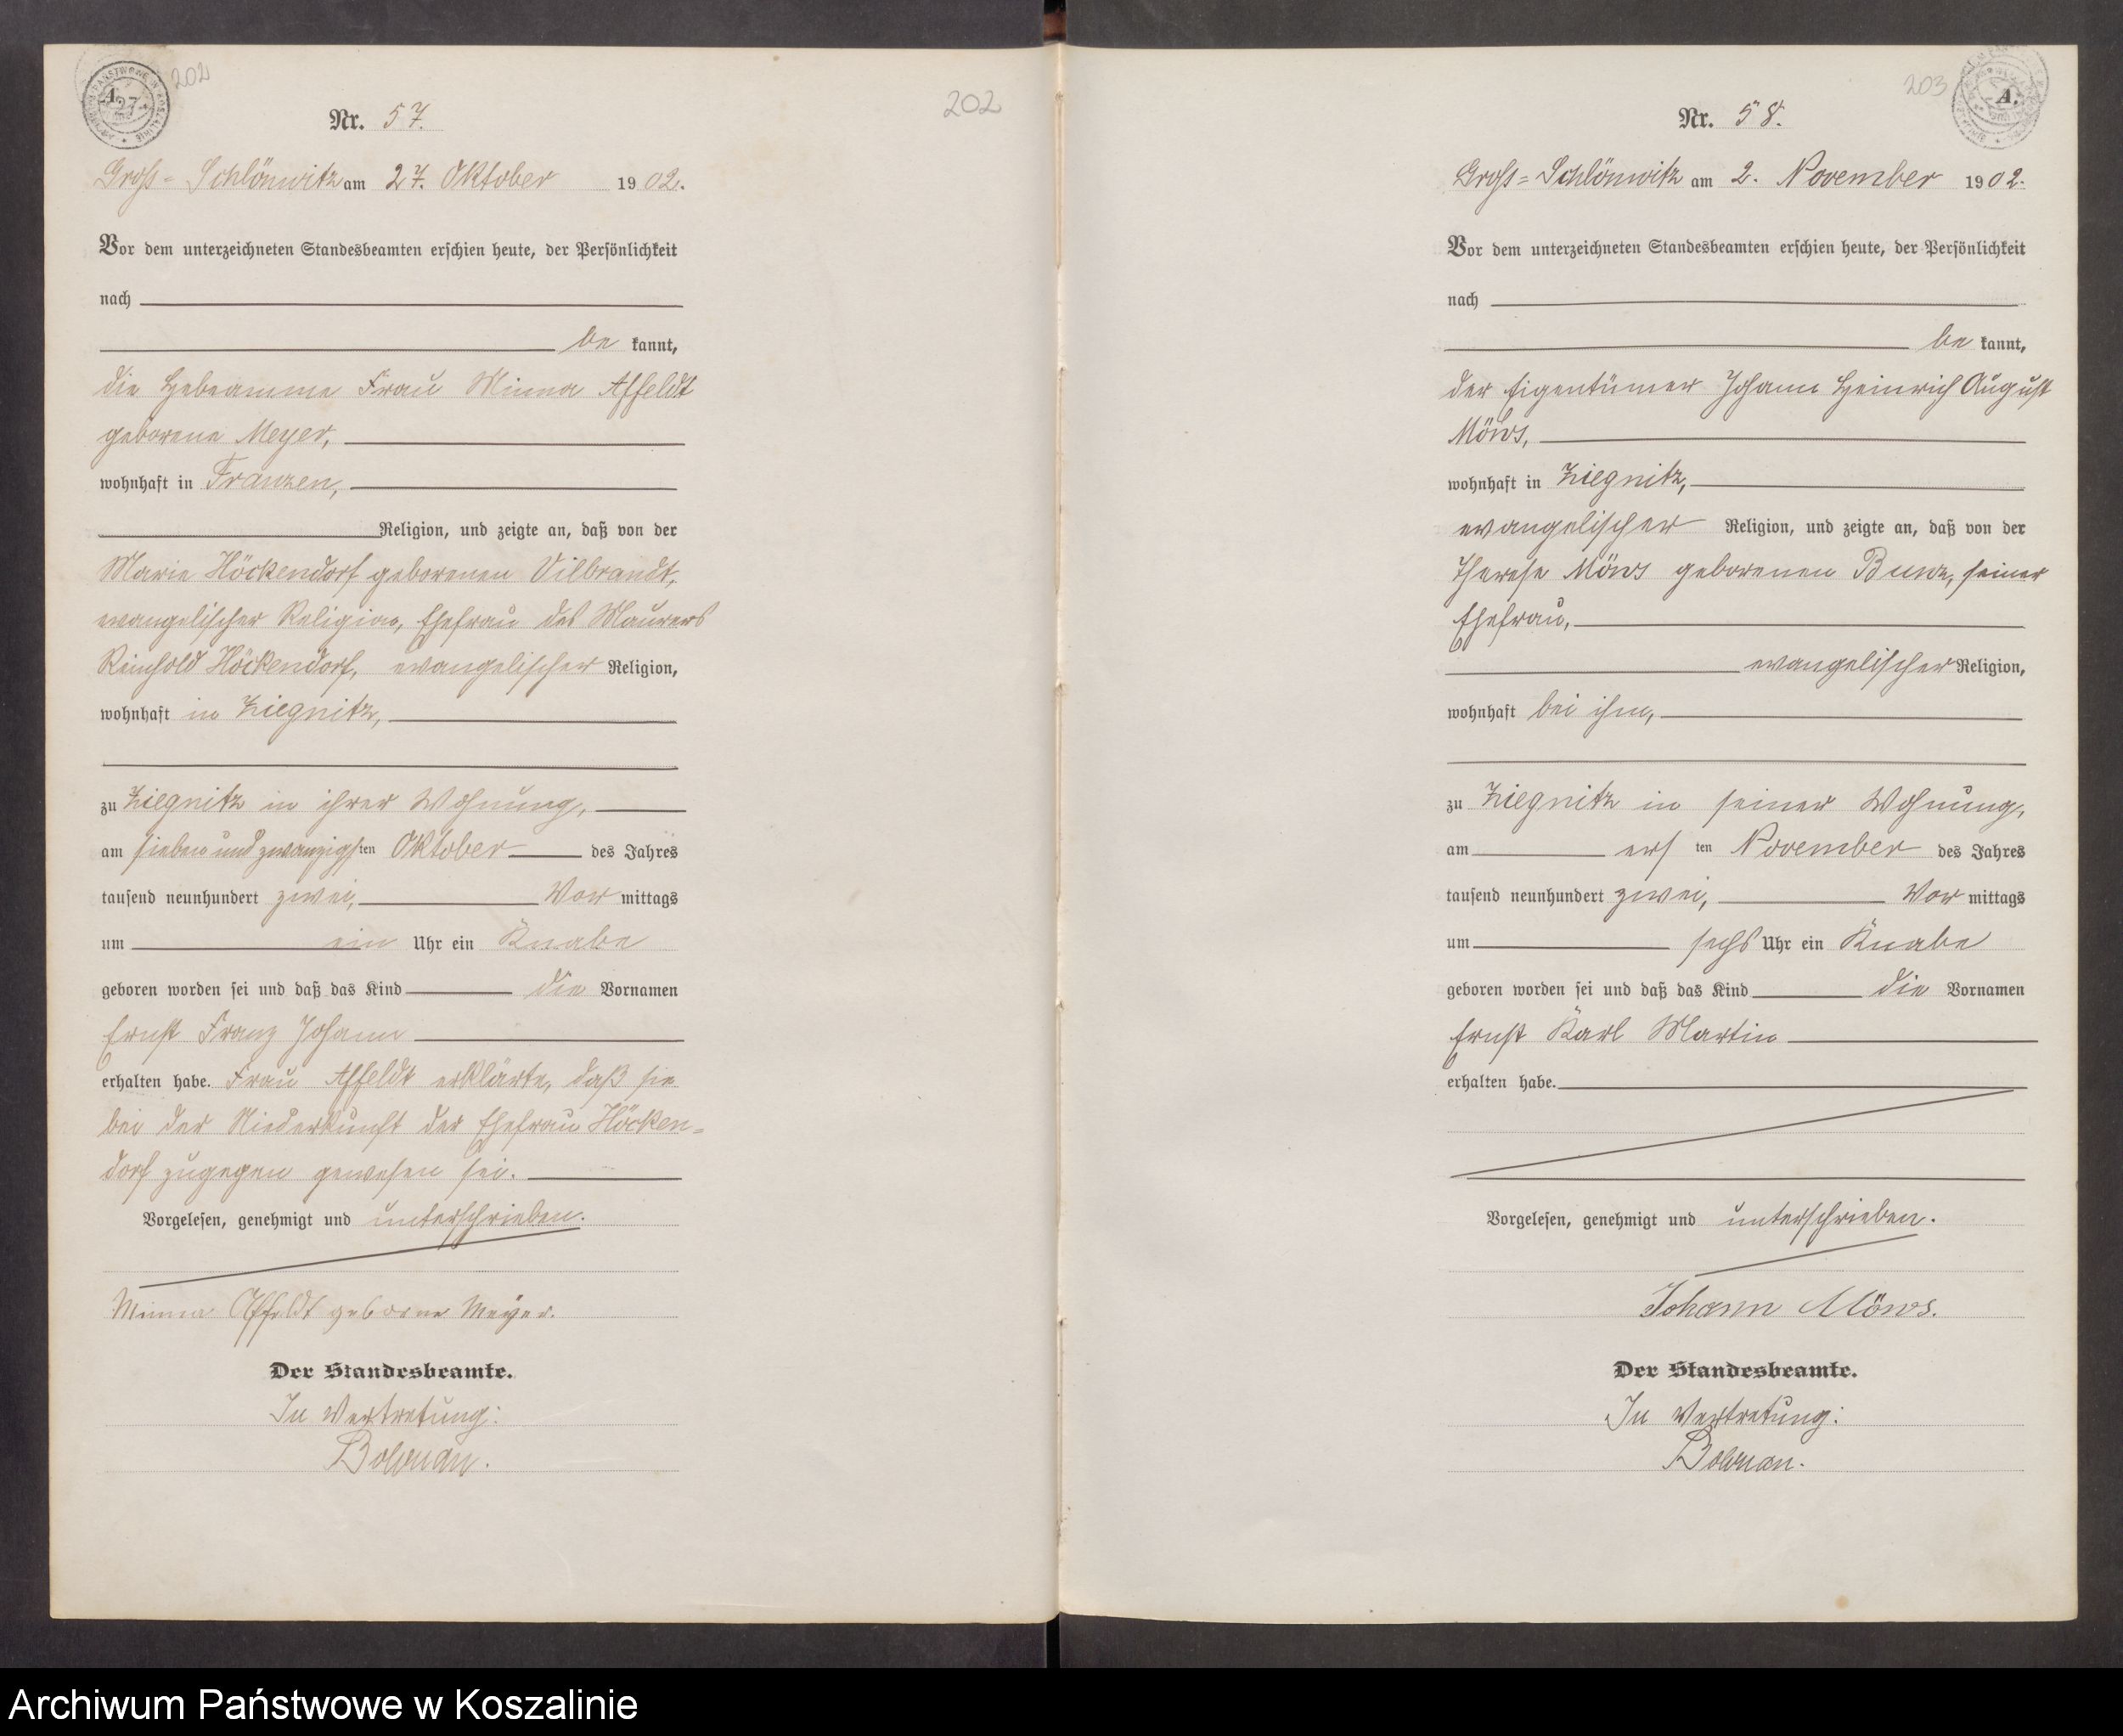 202
A.
Nr. 57.
Groß-Schlönwitz am 27. Oktober 1902.
Vor dem unterzeichneten Standesbeamten erschien heute, der Persönlichkeit
nach
be kannt,
die Hebeamme Frau Minna Affeldt
geborene Meyer,
wohnhaft in Franzen,
Religion, und zeigte an, daß von der
Marie Höckendorf geborenen Vilbrandt,
evangelischer Religion, Ehefrau des Maurers
Reinhold Höckendorf, evangelischer Religion,
wohnhaft in Ziegnitz,
zu Ziegnitz in ihrer Wohnung,
am sieben und zwanzigsten Oktober des Jahres
tausend neunhundert zwei, Vor mittags
um ein Uhr ein Knabe
geboren worden sei und daß das Kind die Vornamen
Ernst Franz Johann
erhalten habe. Frau Affeldt erklärte, daß sie
bei der Niederkunft der Ehefrau Höcken-
dorf zugegen gewesen sei.
Vorgelesen, genehmigt und unterschrieben.
Minna Affeldt geborne Meyer.
Der Standesbeamte.
In Vertretung:
202
203
A.
Nr. 58.
Groß-Schlönwitz am 2. November 1902.
Vor dem unterzeichneten Standesbeamten erschien heute, der Persönlichkeit
nach
be kannt,
der Eigentümer Johann Heinrich August
Möws,
wohnhaft in Ziegnitz,
evangelischer Religion, und zeigte an, daß von der
Therese Möws geborenen Bunz, seiner
Ehefrau,
evangelischer Religion,
wohnhaft bei ihm,
zu Ziegnitz in seiner Wohnung,
am ersten November des Jahres
tausend neunhundert zwei, Vor mittags
um sechs Uhr ein Knabe
geboren worden sei und daß das Kind die Vornamen
Ernst Karl Martin
erhalten habe.
Vorgelesen, genehmigt und unterschrieben.
Johann Möws.
Der Standesbeamte.
In Vertretung:
Archiwum Państwowe w Koszalinie